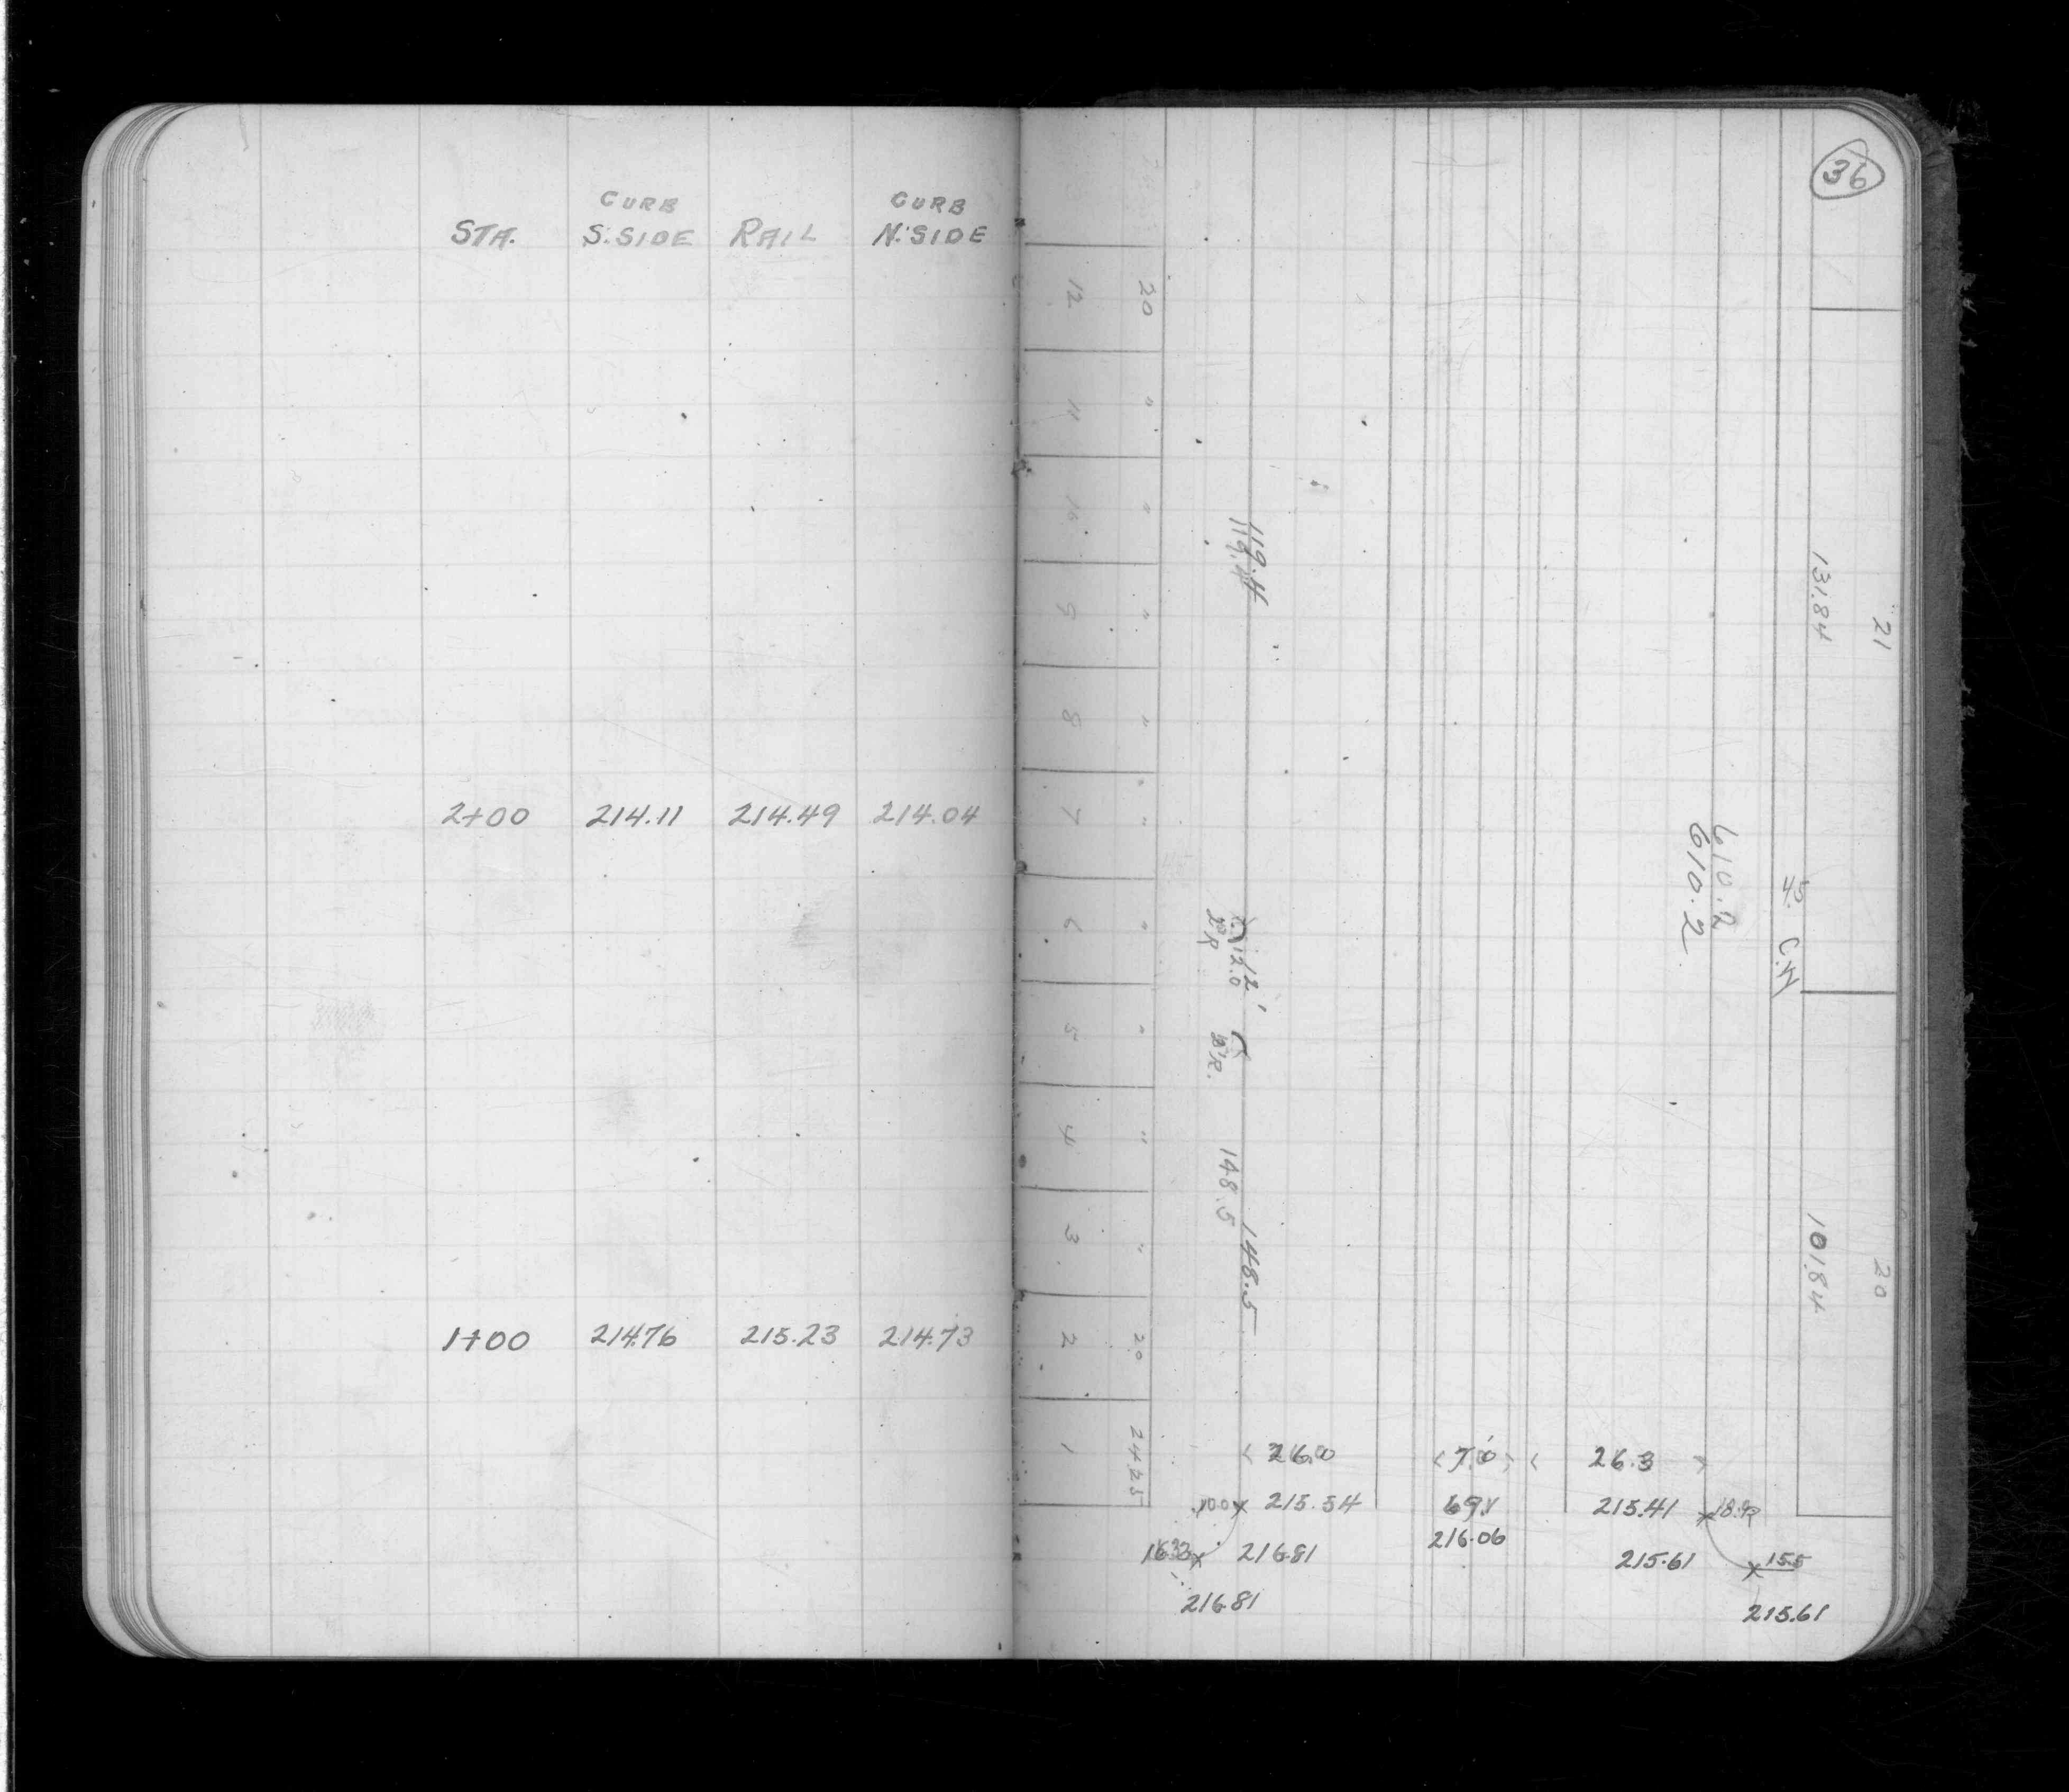 CURB CURB
STA. S. SIDE RAIL N. SIDE
2+00 214.11 214.49 214.04
1+00 214.76 215.23 214.73
36
12 20
11 "
10 "
9 "
8 "
7 "
6 "
5 "
4 "
3 "
2 20
1 24.25
119.4
119.4
12.0 12'
148.5
148.5
610.2
610.2
4' C.W
131.84 21
101.84 20
26.0 7.0 26.3
215.54 69 215.41
216.06
216.81 215.61 15.5
216.81 215.61